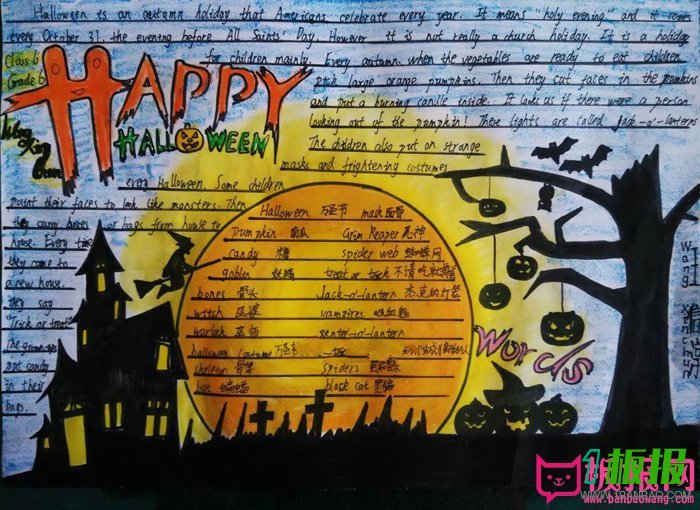 Halloween is an autumn holiday that Americans celebrate every year. It means "holy evening" and it comes
every October 31, the evening before All Saints' Day. However it is not really a church holiday. It is a holiday
for children mainly. Every autumn when the vegetables are ready to eat children
pick large orange pumpkins. Then they cut faces in the pumpkins
and put a burning candle inside. It looks as if there were a person
looking out of the pumpkin! These lights are called jack-o'-lanterns
The children also put on strange
masks and frightening costumes
every Halloween. Some children
paint their faces to look like monsters. Then
they carry boxes or bags from house to
house. Every time
they come to
a new house.
they say
Trick or treat!
The grown-ups
put candy
in their
bags.
Class 6
Grade 6
HAPPY
HALLOWEEN
Halloween 万圣节 mask 面具
Pumpkin 南瓜 Grim Reaper 死神
candy 糖 spider web 蜘蛛网
goblin 妖精 treat or trick 不请吃就
bones 骨头 Jack-o'-lantern 杰克的灯笼
witch 巫婆 vampires 吸血鬼
warlock 巫师 o'-lantern
halloween costume 万圣
skeleton 骨架 spiders
bat 蝙蝠 black cat 黑猫
Words
板报网
www.banbaowang.com
1板报
WWW.1BANBAO.COM